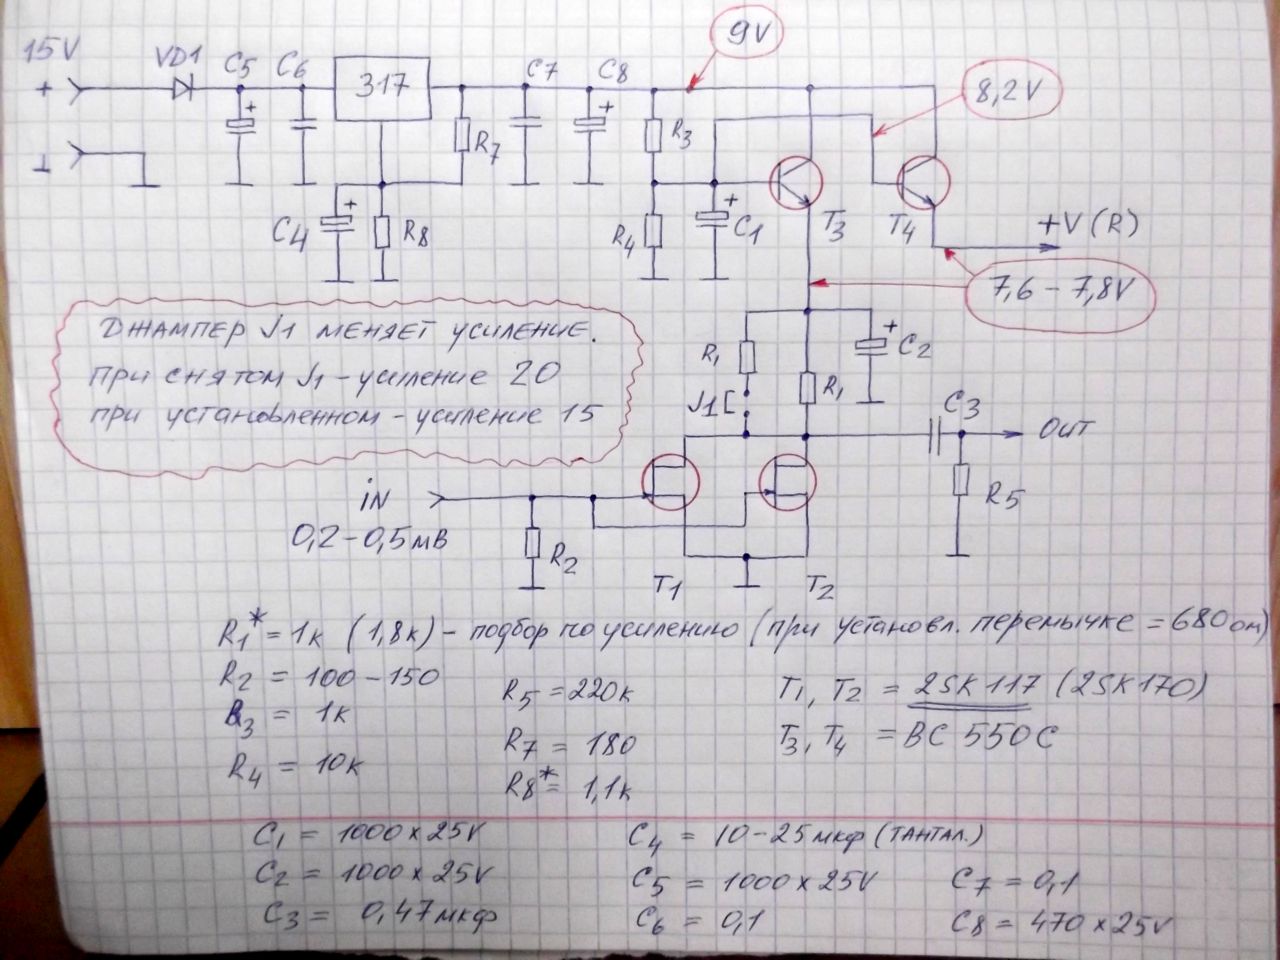 15V
VD1
C5
C6
317
C7
C8
9V
8,2V
+
⊥
R7
R3
C4
+
R8
R4
+
C1
T3
T4
+V (R)
7,6 – 7,8V
ДЖАМПЕР J1 МЕНЯЕТ УСИЛЕНИЕ.
ПРИ СНЯТОМ J1 – УСИЛЕНИЕ 20
ПРИ УСТАНОВЛЕННОМ – УСИЛЕНИЕ 15
R1
J1
R1
+
C2
C3
OUT
R5
iN
0,2–0,5мВ
R2
T1
T2
R1* = 1к (1,8к) – подбор по усилению (при установл. перемычке = 680 ом)
R2 = 100–150
R3 = 1к
R4 = 10к
R5 = 220к
R7 = 180
R8* = 1,1к
T1, T2 = 2SK117 (2SK170)
T3, T4 = BC 550C
C1 = 1000 x 25V
C2 = 1000 x 25V
C3 = 0,47мкф
C4 = 10–25мкф (ТАНТАЛ.)
C5 = 1000 x 25V
C6 = 0,1
C7 = 0,1
C8 = 470 x 25V